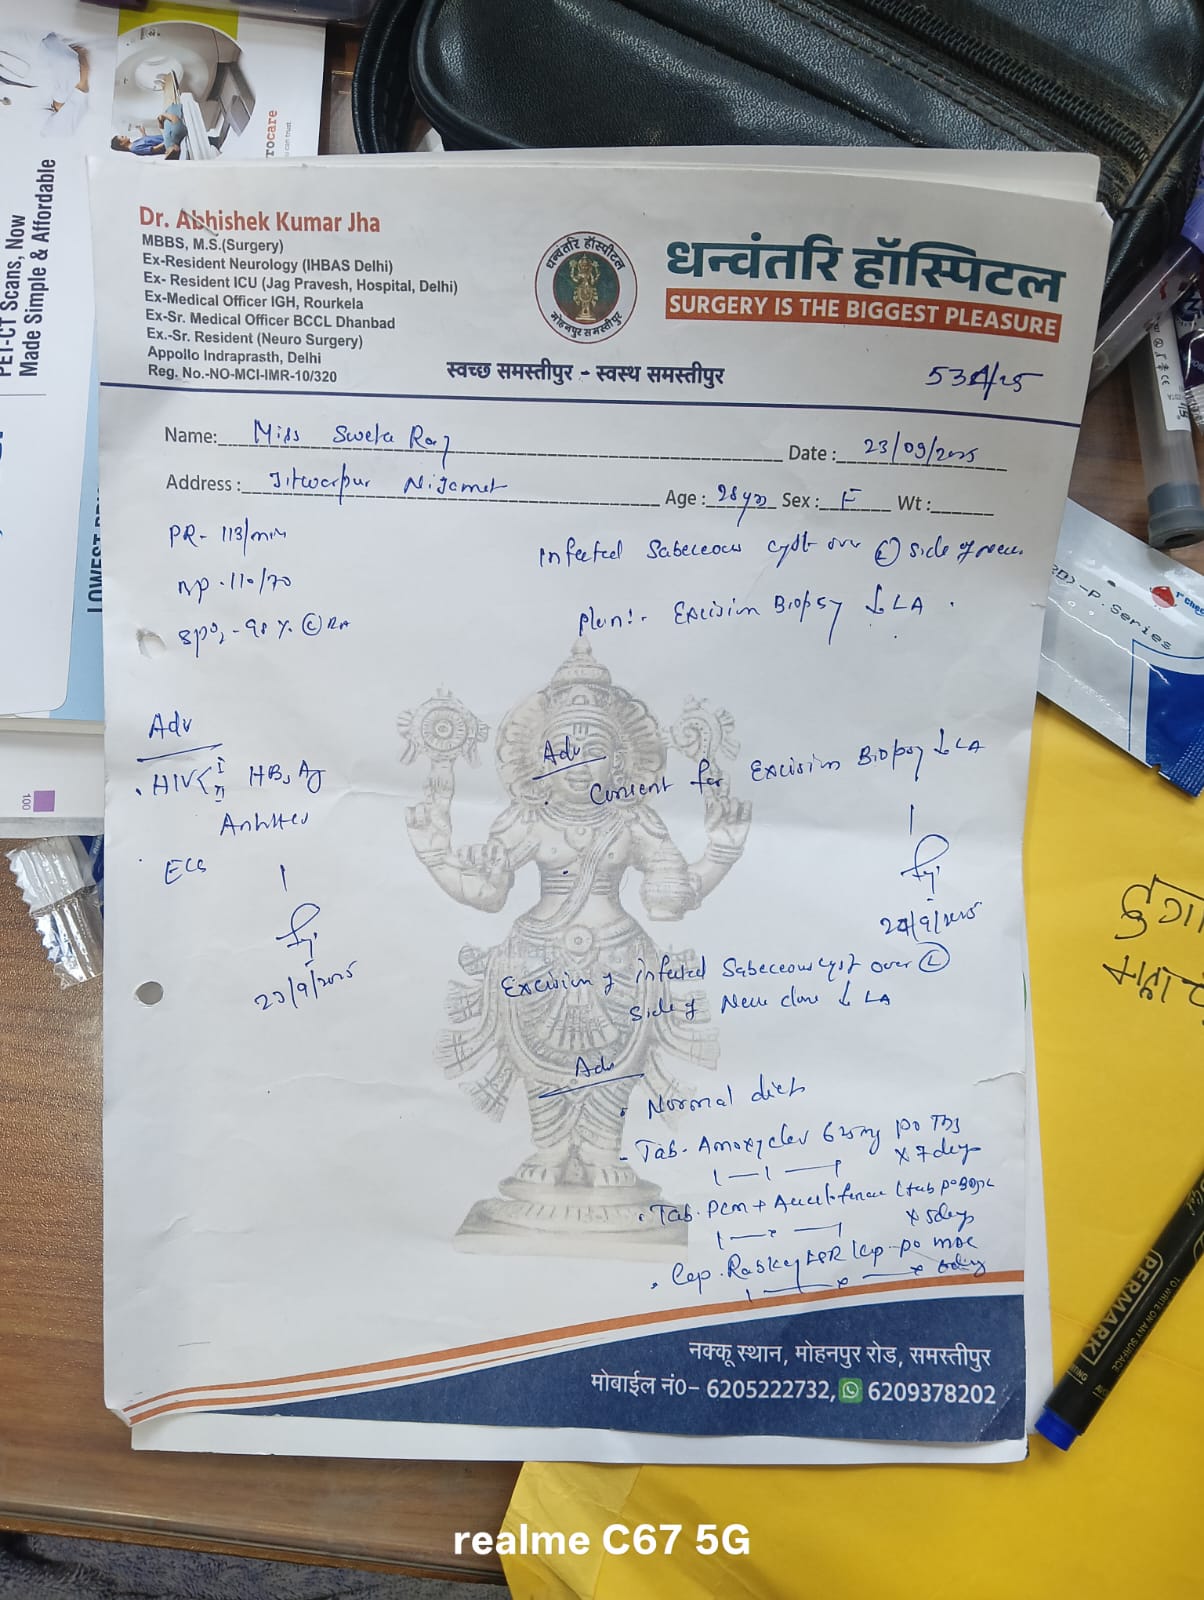 PET-CT Scans, Now
Made Simple & Affordable
rocare
can trust
LOWEST
100
Dr. Abhishek Kumar Jha
MBBS, M.S.(Surgery)
Ex-Resident Neurology (IHBAS Delhi)
Ex- Resident ICU (Jag Pravesh, Hospital, Delhi)
Ex-Medical Officer IGH, Rourkela
Ex-Sr. Medical Officer BCCL Dhanbad
Ex.-Sr. Resident (Neuro Surgery)
Appollo Indraprasth, Delhi
Reg. No.-NO-MCI-IMR-10/320
धन्वंतरि हॉस्पीटल
मोहनपुर समस्तीपुर
धन्वंतरि हॉस्पिटल
SURGERY IS THE BIGGEST PLEASURE
स्वच्छ समस्तीपुर - स्वस्थ समस्तीपुर
Name: Miss Sweta Raj
Date : 23/09/2025
Address : Jitwarpur Nijamat
Age : 28yrs Sex : F Wt :
PR- 113/min
BP - 110/70
SPO2 - 98 % C RA
Infected Sabeceous cyst over L side of
Plan:- Excision Biopsy ↓ LA .
Adv
. HIV I II HBsAg
ECG
23/9/2025
Adv
. Consent for Excision Biopsy ↓ LA
9/2025
Excision of infected Sabeceous cyst over L
side of done ↓ LA
Adv
. Normal diet
- Tab. Amoxyclav 625mg po TDS
x 7 days
1—1—1
. Tab. PCM + 1 tab po
x 5 days
1—x—1
. Cap. DSR 1cap po
1—x—x
नक्कू स्थान, मोहनपुर रोड, समस्तीपुर
मोबाईल नं0– 6205222732, 6209378202
-P. Series
PERMARK
TO WRITE ON ANY SURFACE
realme C67 5G